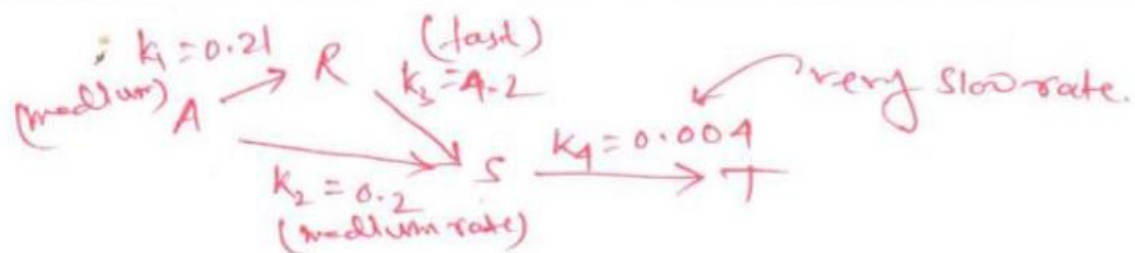 k₁ = 0.21
(medium)
A
R
(fast)
k₃ = 4.2
very slow rate.
k₂ = 0.2
(medium rate)
S
k₄ = 0.004
T